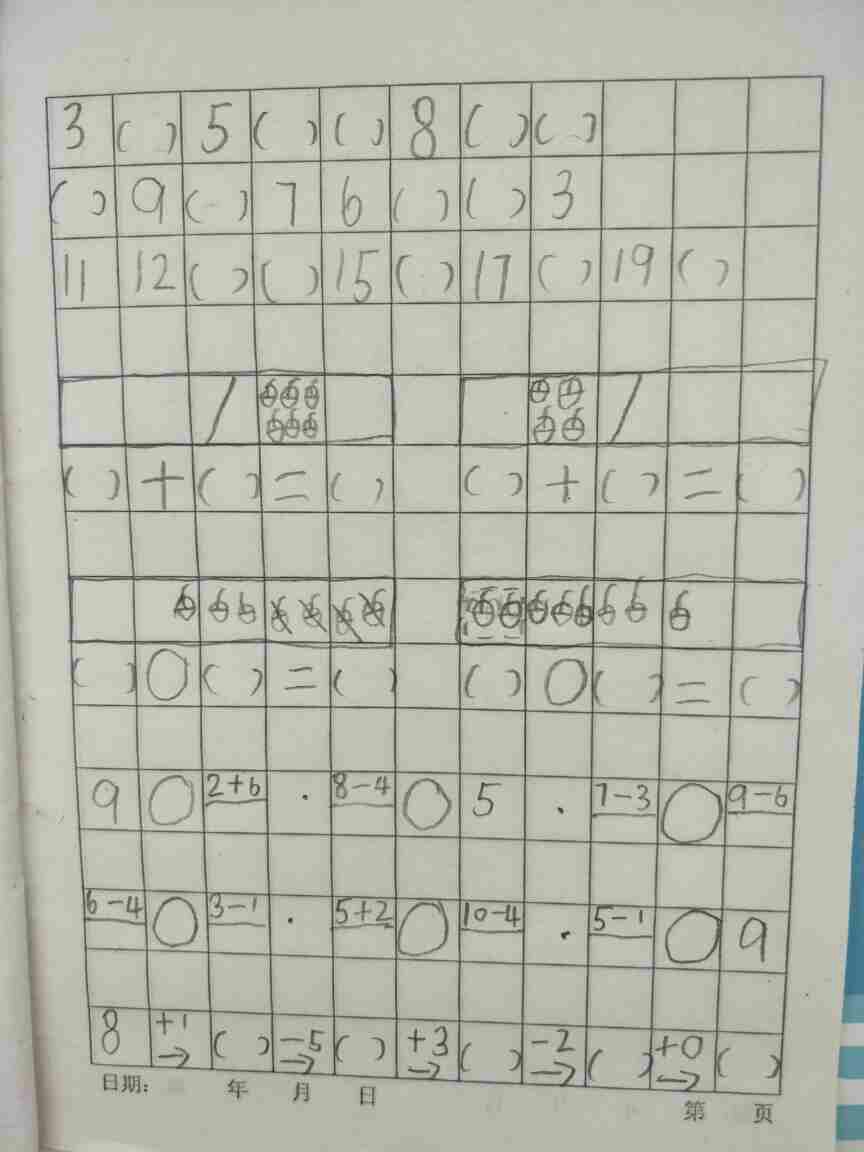 3 ( ) 5 ( ) ( ) 8 ( ) ( )
( ) 9 ( ) 7 6 ( ) ( ) 3
11 12 ( ) ( ) 15 ( ) 17 ( ) 19 ( )
( ) + ( ) = ( ) ( ) + ( ) = ( )
( ) ○ ( ) = ( ) ( ) ○ ( ) = ( )
9 ○ 2+6 · 8-4 ○ 5 · 7-3 ○ 9-6
6-4 ○ 3-1 · 5+2 ○ 10-4 · 5-1 ○ 9
8 +1→ ( ) -5→ ( ) +3→ ( ) -2→ ( ) +0→ ( )
日期: 年 月 日 第 页